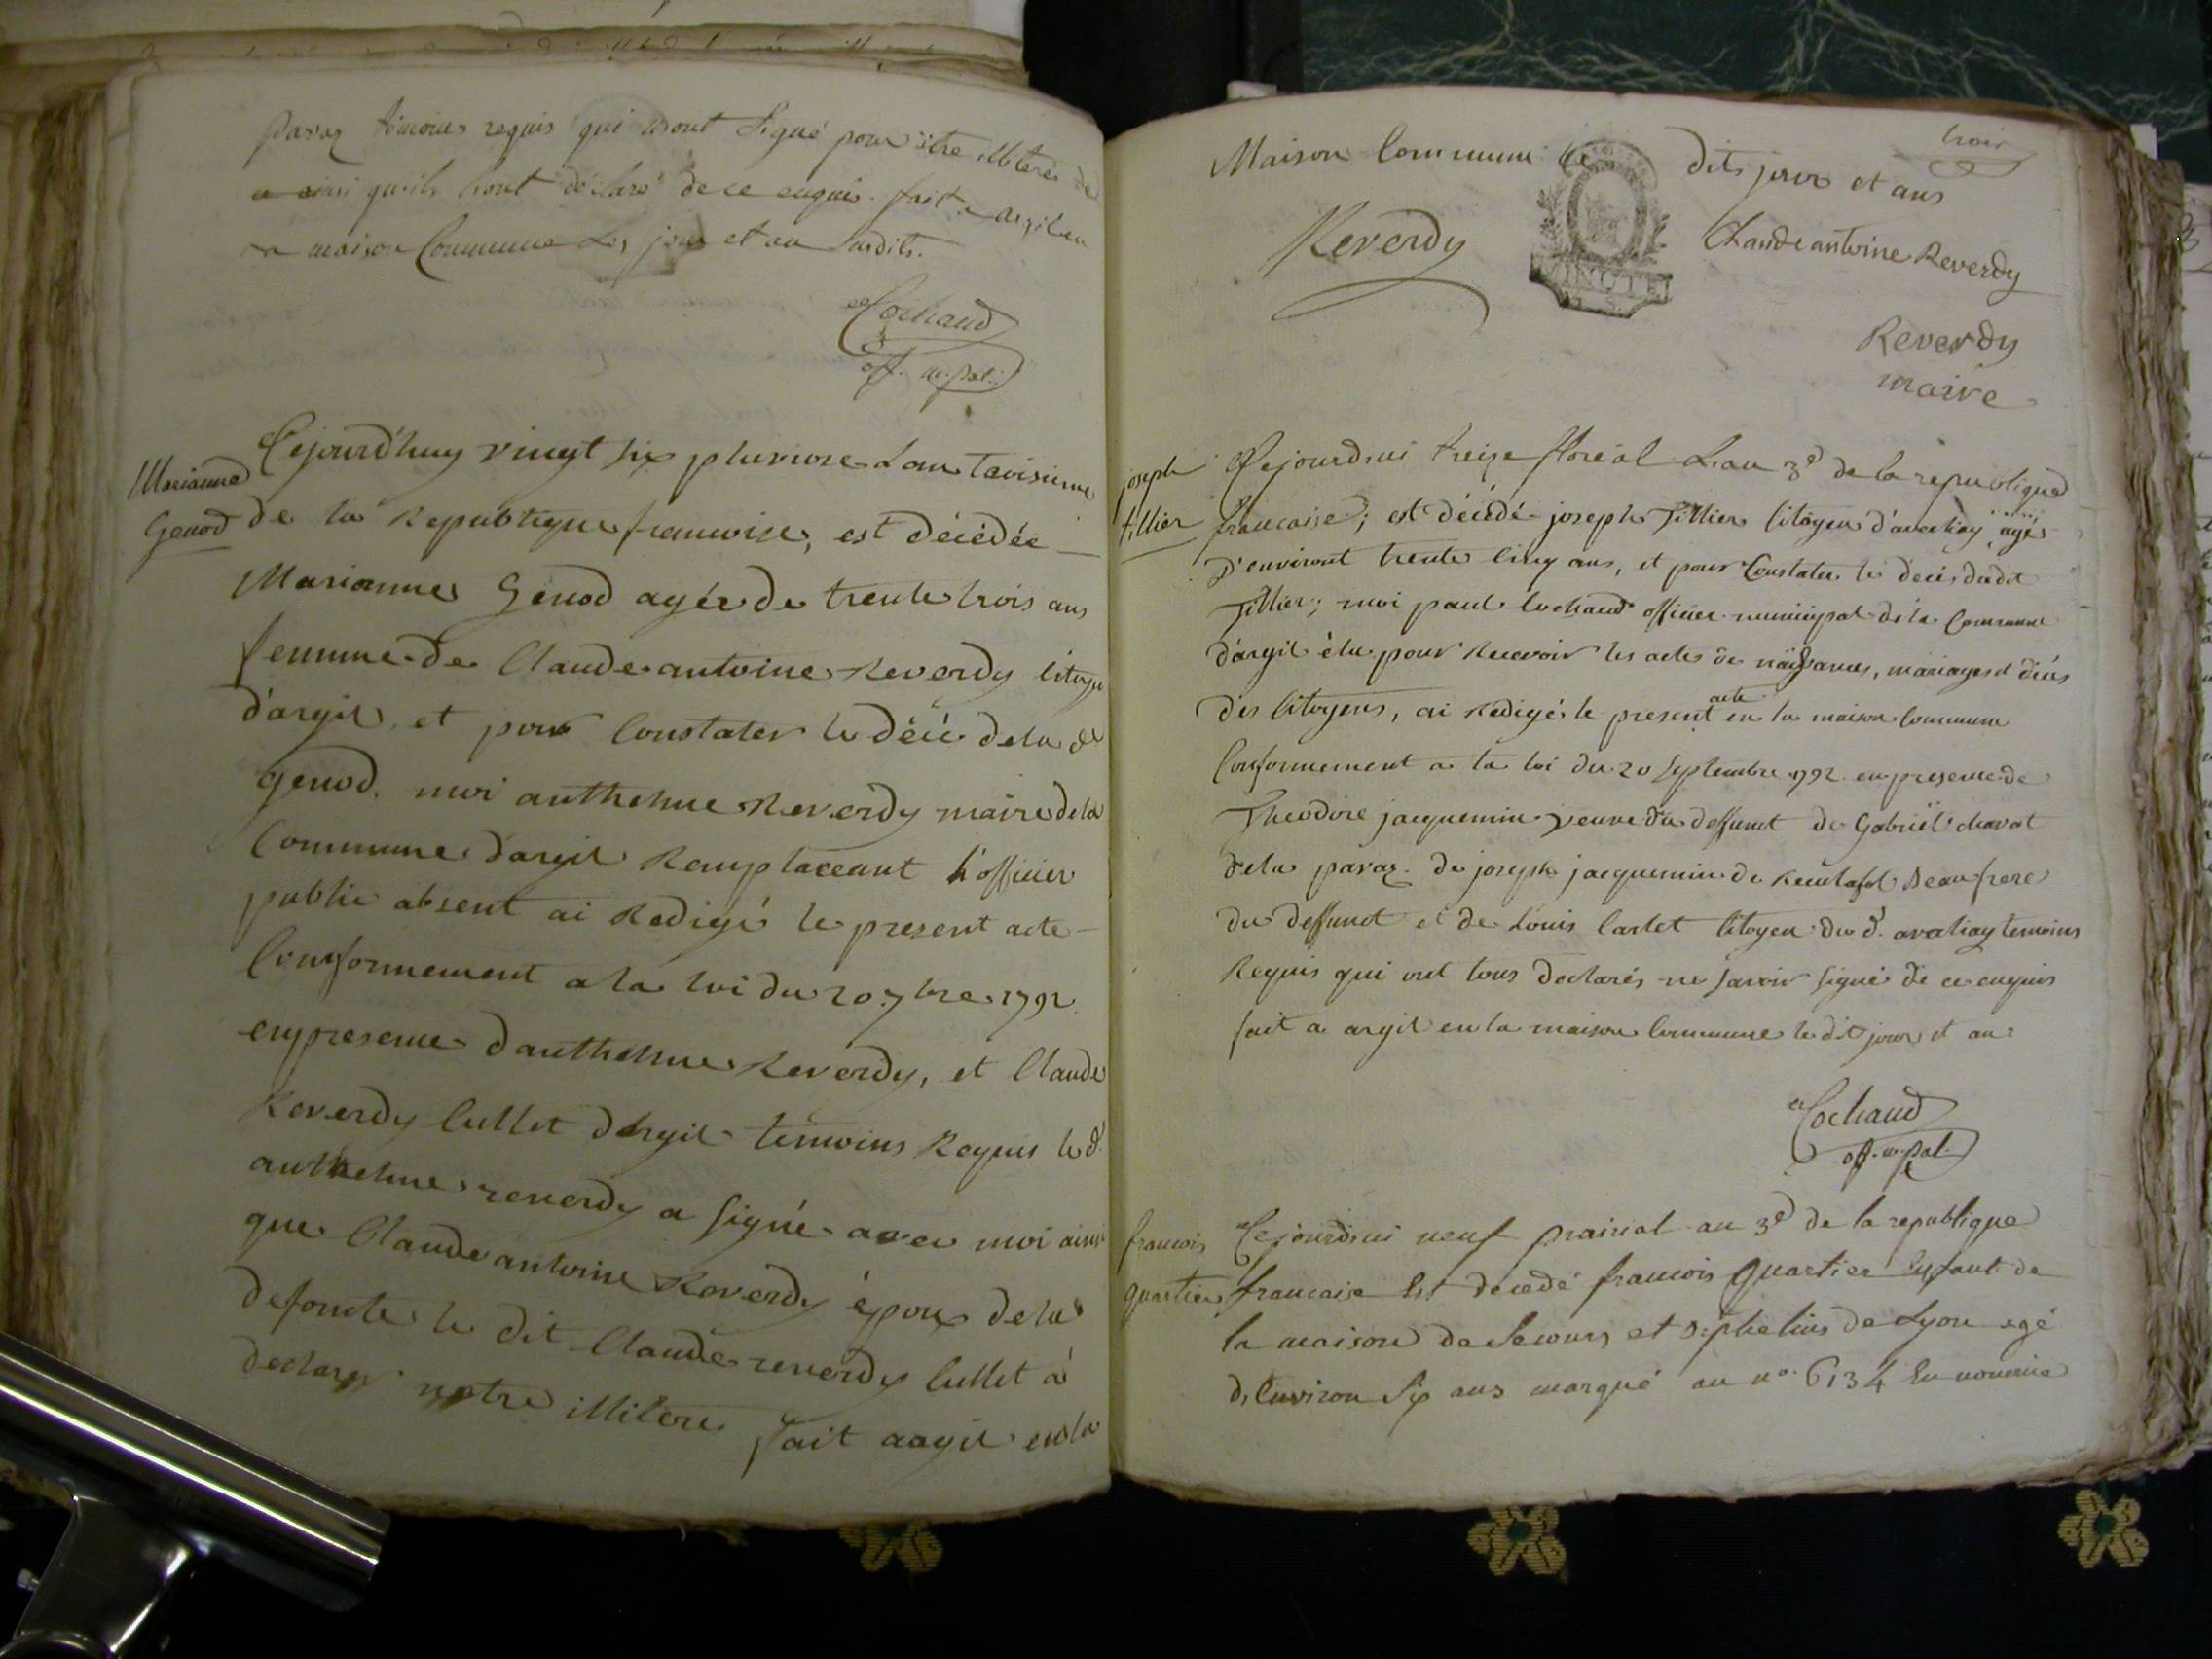 paraz temoins requis qui nont Signé pour être illiteres de
a ainsi quils l'ont déclaré de ce enquis. fait a argil en
la maison Commune Les jour et an Susdits.
Cochaud
off. m.pal.
Marianne
Genod
Cejourd'huy vingt six pluviose Lan troisieme
de la Republique francoise, est décédée
Marianne Genod agée de trente trois ans
femme de Claude antoine Reverdy citoyen
d'argil, et pour Constater le décé de la de
genod. moi anthelme Reverdy maire de la
Commune d'argil Remplaceant l'officier
public absent ai Redigé le present acte
Conformement a la loi du 20 7bre 1792
en presence d'anthelme Reverdy, et Claude
Reverdy Cullet d'argil temoins Requis le d.
anthelme reverdy a signé avec moi ainsi
que Claude antoine Reverdy époux de la
defuncte le dit Claude reverdy Cullet à
declarer netre illitere fait a argil en la
trois
Maison Commune les dits jour et ans
Reverdy
Claude antoine Reverdy
MINUTE
Reverdy
maire
joseph
tillier
Cejourdhui treize floréal Lan 3e de la republique
francaise; est décédé joseph Tillier Citoyen d'avechay, agé
d'environt trente cinq ans, et pour Constater le decés dudit
Tillier; moi paul Cochaud officier municipal de la Commune
d'argil élu pour Recevoir les actes de naissances, mariages et décés
des Citoyens, ai Redigé le present acte en la maison Commune
Conformement a la loi du 20 septembre 1792 en presence de
Theodore jacquemin veuve du deffunct de Gabriel charat
de la paraz. de joseph jacquemin de beau frere
du deffunct et de Louis Castet Citoyen du d. temoins
Requis qui ont tous declarés ne savoir signé de ce enquis
fait a argil en la maison Commune le dit jour et an
Cochaud
off. m.pal.
francois
quartier
Cejourdhui neuf prairial an 3e de la republique
francaise Est decedé francois Quartier Enfant de
la maison de Secours et orphelins de Lyon agé
d'Environ Six ans marqué au no. 6134 En nourrice